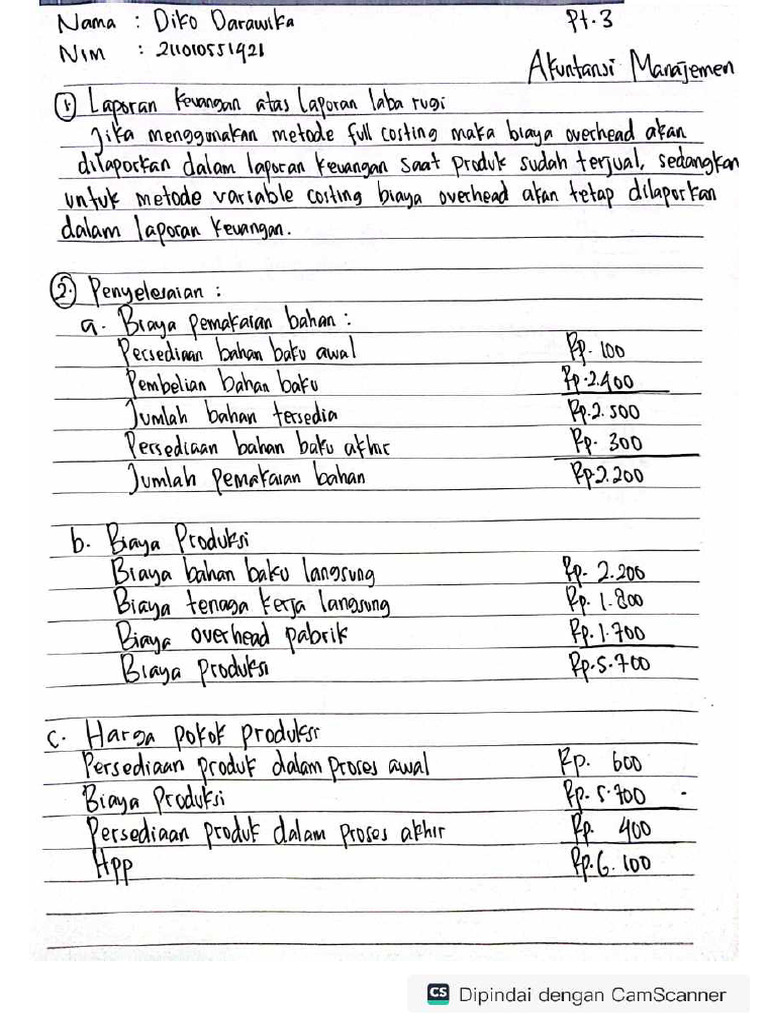 Nama : Diko Darawika Pt.3
Nim : 211010551421
Akuntansi Manajemen
1. Laporan Keuangan atas Laporan laba rugi
Jika menggunakan metode full costing maka biaya overhead akan
dilaporkan dalam laporan keuangan saat produk sudah terjual, sedangkan
untuk metode variable costing biaya overhead akan tetap dilaporkan
dalam laporan keuangan.
2. Penyelesaian :
a. Biaya pemakaian bahan :
Persediaan bahan baku awal Rp. 100
Pembelian bahan baku Rp.2.400
Jumlah bahan tersedia Rp.2.500
Persediaan bahan baku akhir Rp. 300
Jumlah pemakaian bahan Rp.2.200
b. Biaya Produksi
Biaya bahan baku langsung Rp. 2.200
Biaya tenaga kerja langsung Rp. 1.800
Biaya overhead pabrik Rp. 1.700
Biaya produksi Rp.5.700
c. Harga pokok produksi
Persediaan produk dalam proses awal Rp. 600
Biaya Produksi Rp. 5.700
Persediaan produk dalam proses akhir Rp. 400
Hpp Rp.6.100
CS Dipindai dengan CamScanner